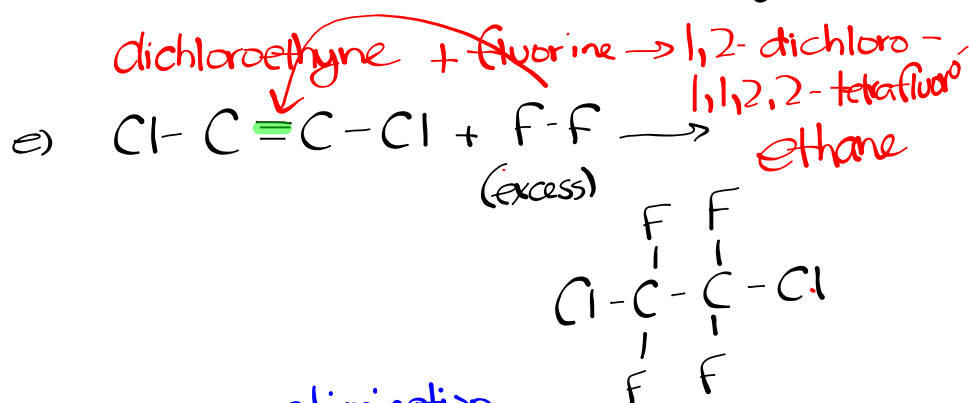 dichloroethyne + fluorine → 1,2-dichloro-
1,1,2,2-tetrafluoro
ethane
e) Cl-C≡C-Cl + F-F →
(excess)
F F
Cl-C-C-Cl
F F
elimination